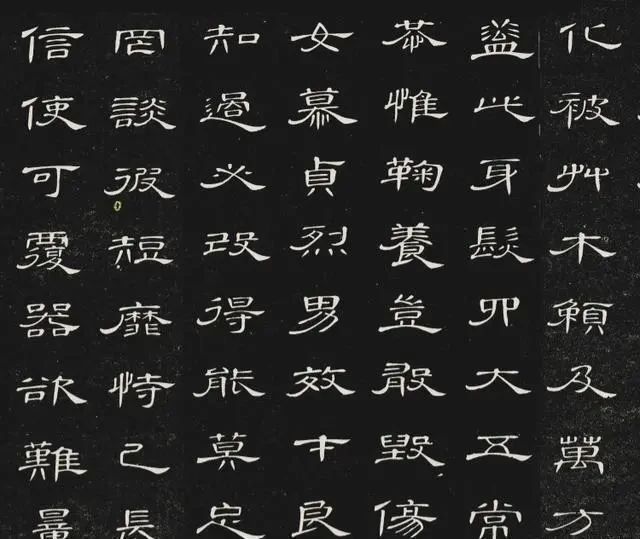 化被艸木賴及萬方
蓋此身髮四大五常
恭惟鞠養豈敢毀傷
女慕貞烈男效才良
知過必改得能莫忘
罔談彼短靡恃己長
信使可覆器欲難量